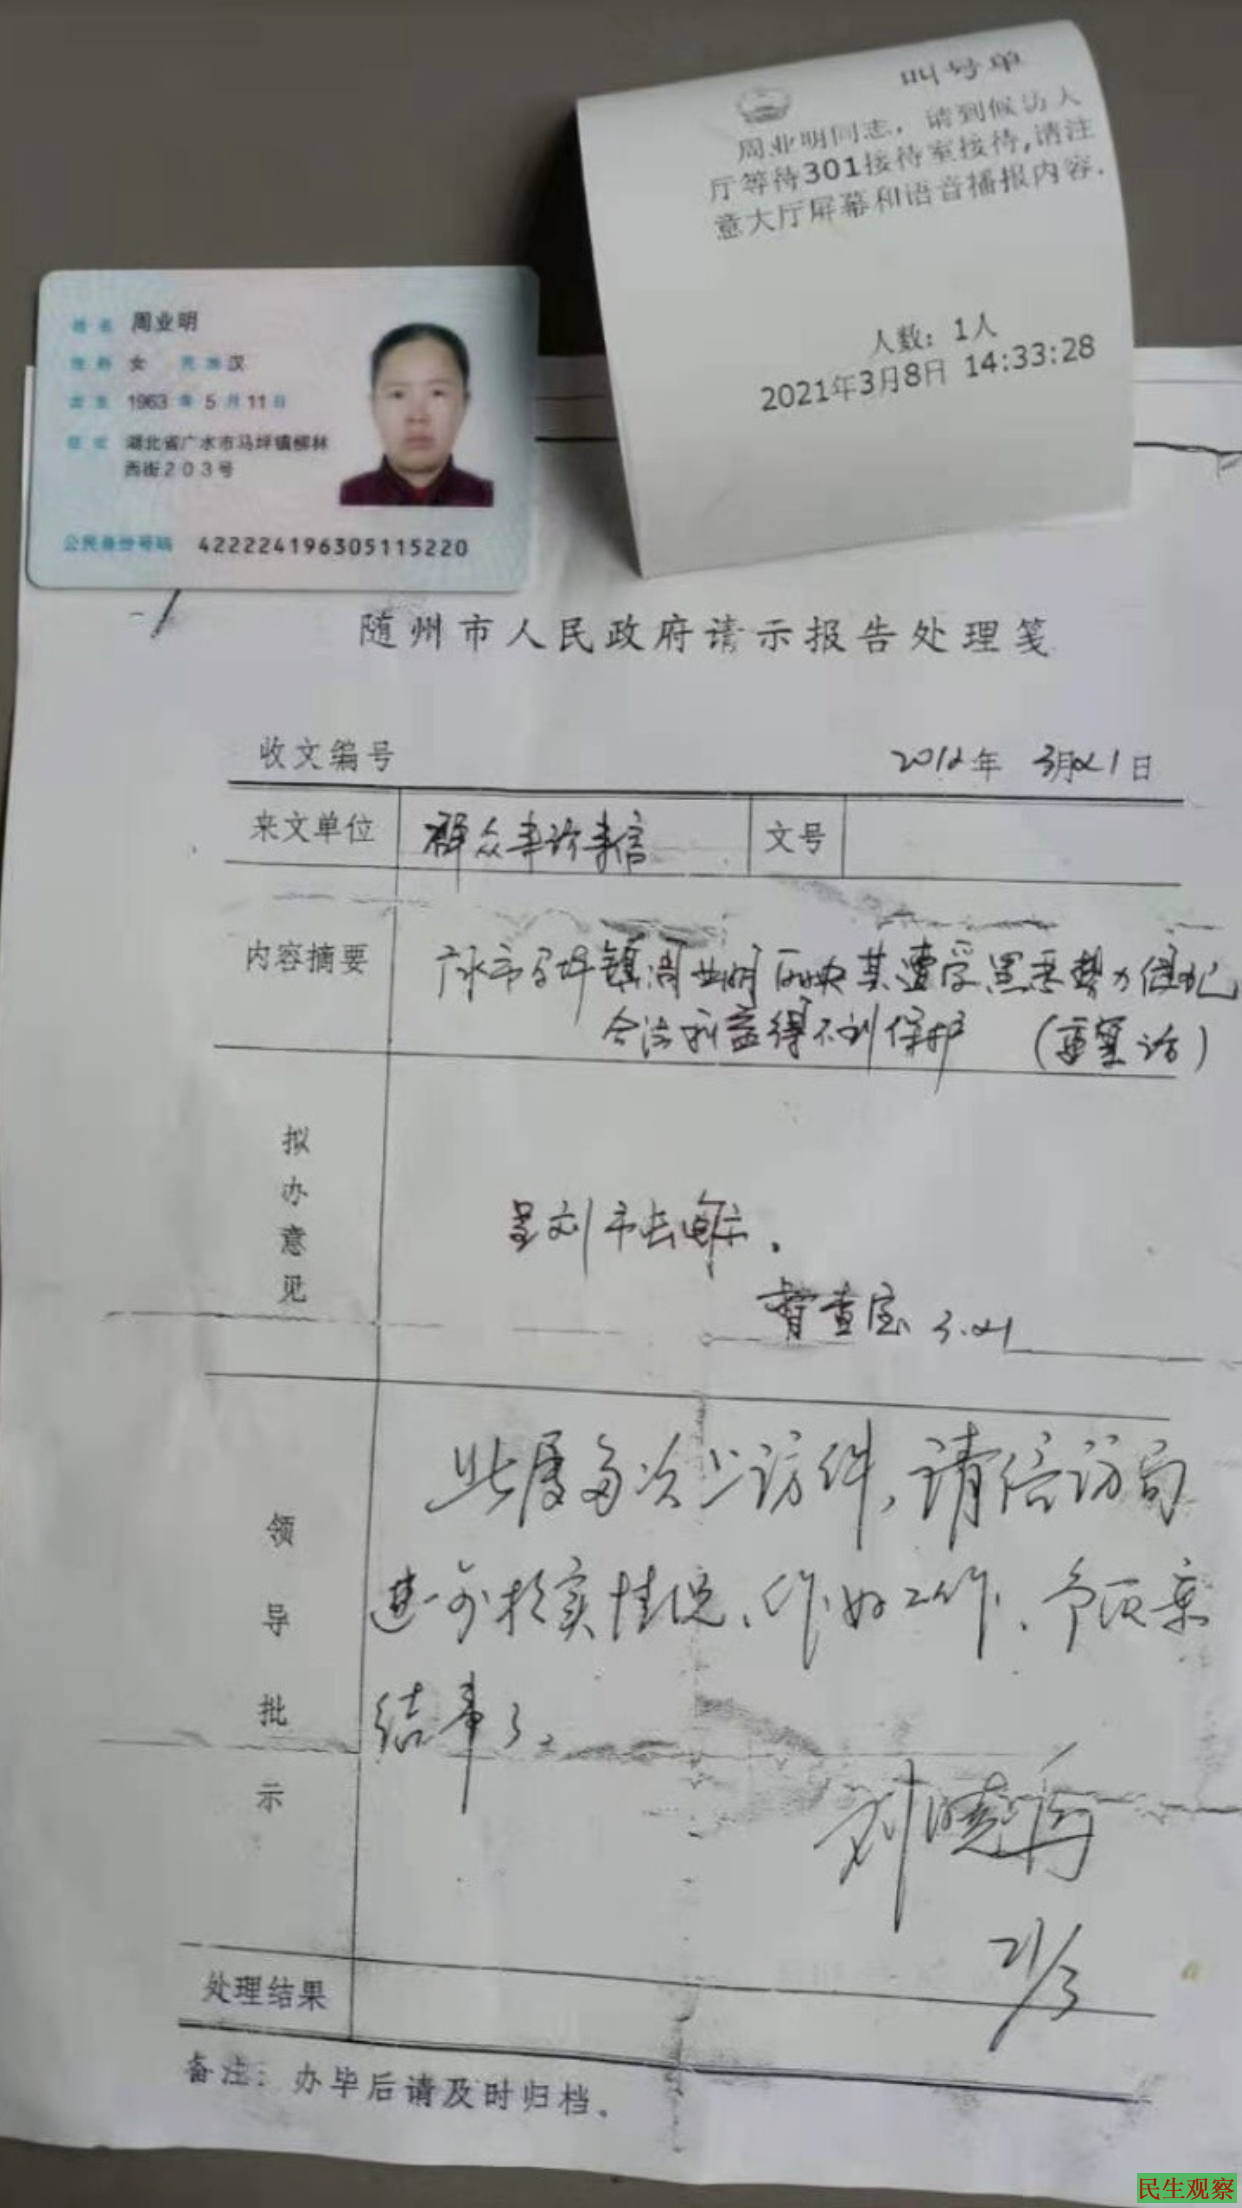 叫号单
周业明同志，请到候访人
厅等待301接待室接待，请注
意大厅屏幕和语音播报内容.
人数：1人
2021年3月8日 14:33:28
姓名 周业明
性别 女 民族 汉
出生 1963 年 5 月 11 日
住址 湖北省广水市马坪镇柳林
西街203号
公民身份号码 422224196305115220
随州市人民政府请示报告处理笺
收文编号
2012年 3月21日
来文单位 群众来访来信 文号
内容摘要 广水市马坪镇周业明反映其遭受黑恶势力侵犯
合法利益得不到保护 (重复访)
拟办意见
呈刘市长阅示.
督查室 3.21
领导批示
此属多次上访件，请信访局
进一步核实情况、作好工作、争取案
结事了。
刘晓
21/3
处理结果
备注：办毕后请及时归档。
民生观察